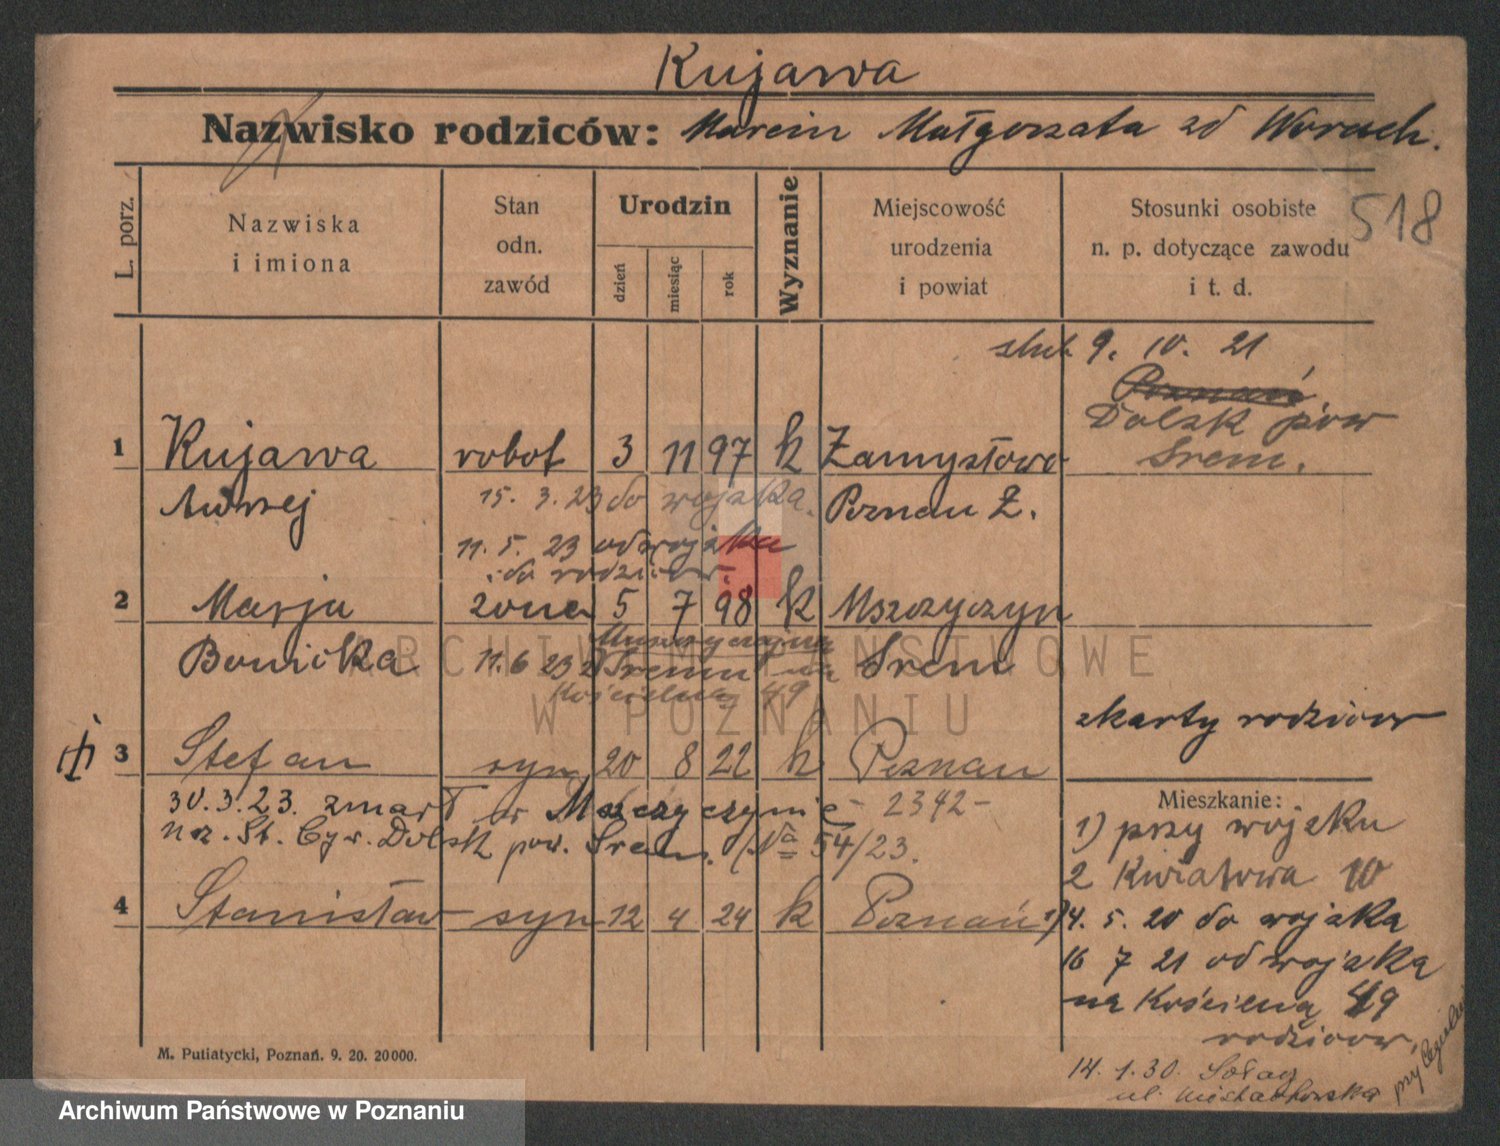 Kujawa
Nazwisko rodziców: Marcin Małgorzata zd Worach.
518
L. porz.
Nazwiska i imiona
Stan odn. zawód
Urodzin
dzień
miesiąc
rok
Wyznanie
Miejscowość urodzenia i powiat
Stosunki osobiste n. p. dotyczące zawodu i t. d.
ślub 9. 10. 21
Poznań
Dolsk pow
Śrem.
1 Kujawa robot 3 11 97 k Zamysłowo
Andrzej 15. 3. 23 do wojska. Poznań Z.
11. 5. 23 od wojska
do rodziców
2 Marja żona 5 7 98 k Mszczyczyn
Bonicka 11. 6 23 Śrem
Kościelna 49
z karty rodziców
3 Stefan syn 20 8 22 k Poznań
30. 3. 23. zmarł w Mszczyczynie - 2342 -
Dolsk pow. Śrem. (Nº 54/23.
4 Stanisław syn 12 4 24 k Poznań
Mieszkanie:
1) przy wojsku
2 Kwiatowa 10
14. 5. 20 do wojska
16 7 21 od wojska
na Kościelną 49
rodziców
14. 1. 30. Sołacz
ul.
M. Putiatycki, Poznań. 9. 20. 20000.
ARCHIWUM PAŃSTWOWE
W POZNANIU
Archiwum Państwowe w Poznaniu